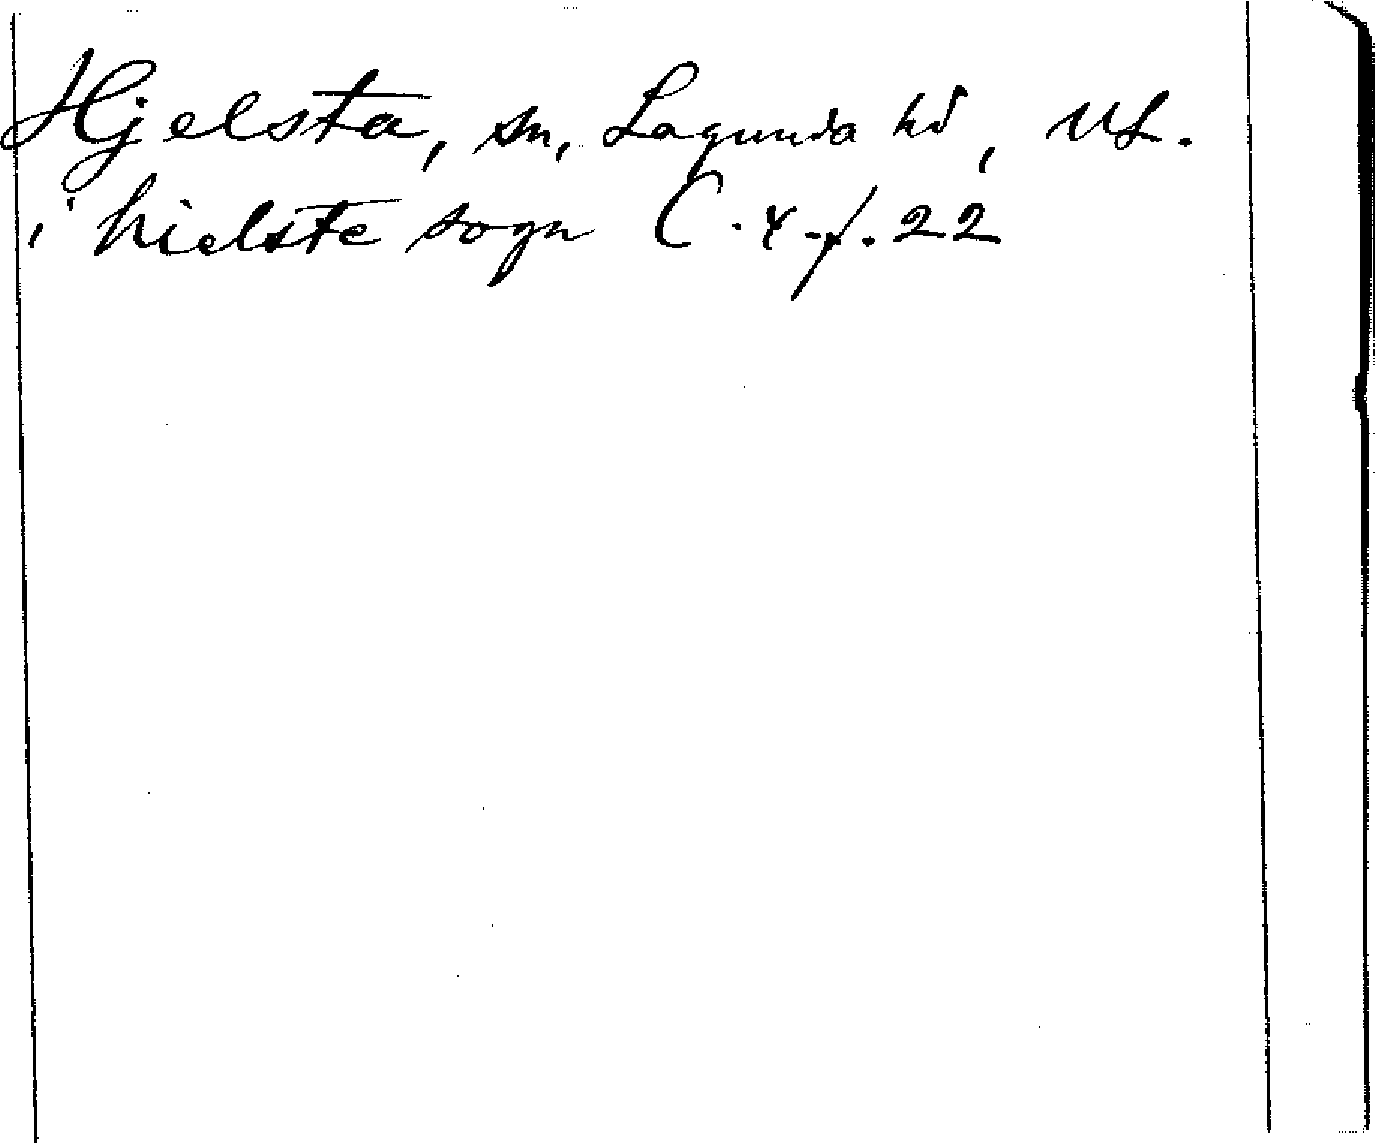 Hjelsta, sn, Lagunda hd, UL.
i hielste sogn C. 4. f. 22